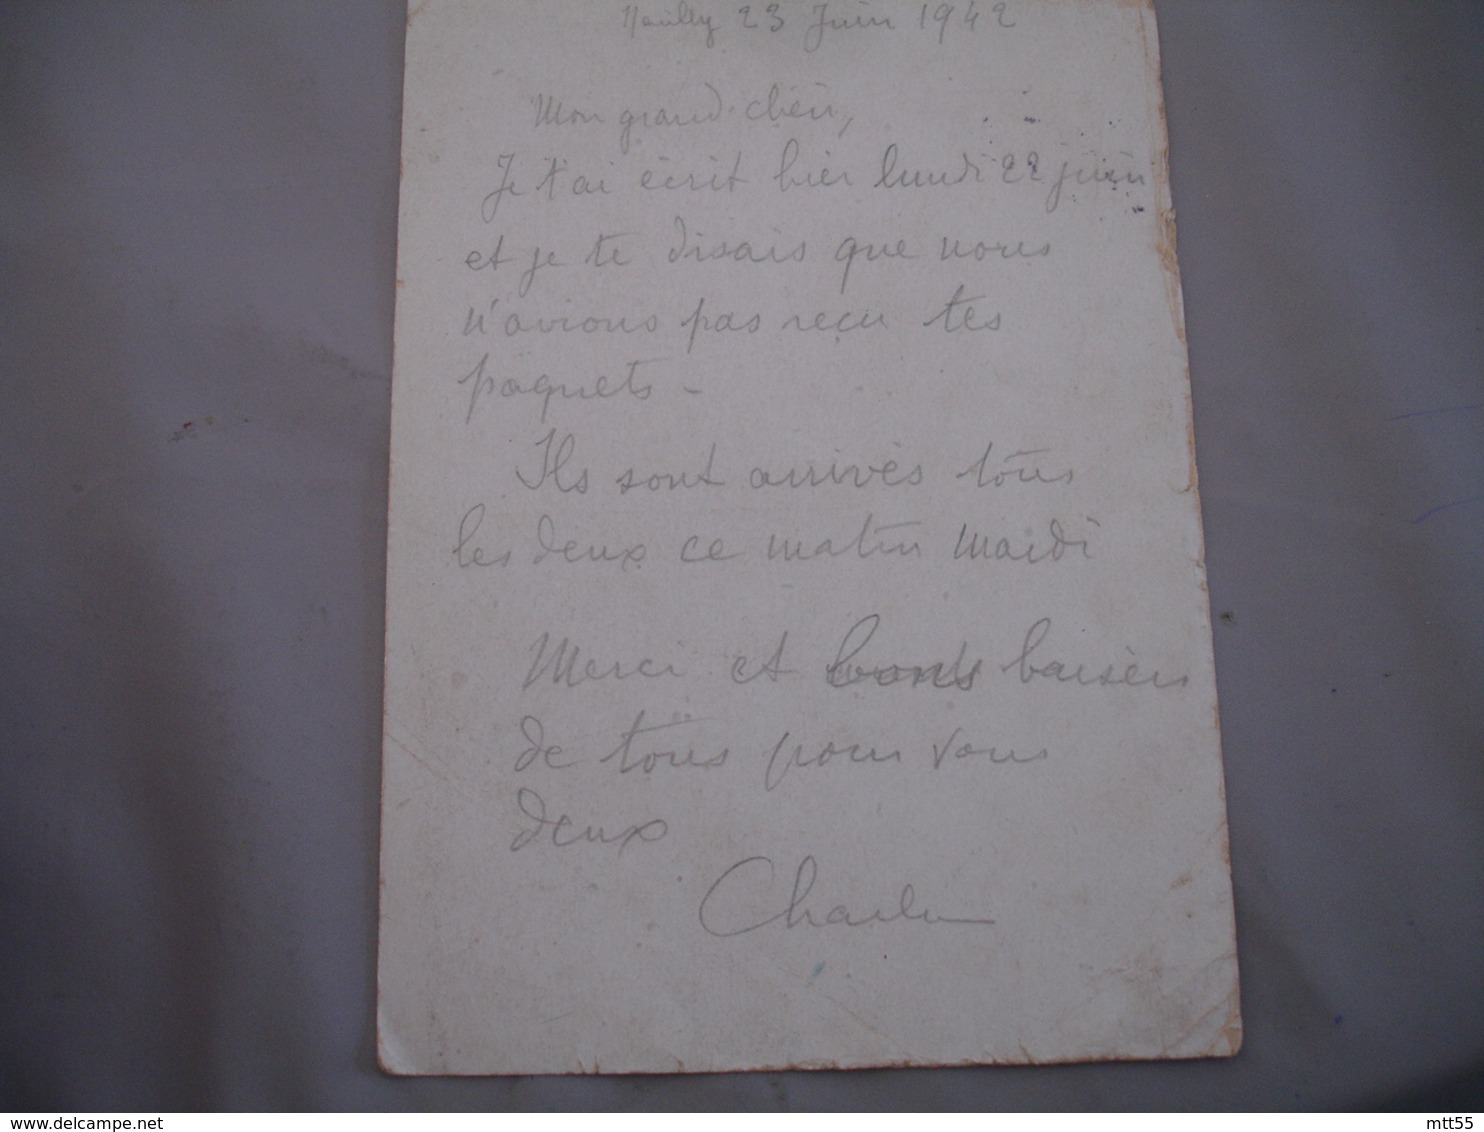 Neuilly 23 Juin 1942
Mon grand chéri,
Je t'ai écrit hier lundi 22 juin
et je te disais que nous
n'avions pas reçu tes
paquets -
Ils sont arrivés tous
les deux ce matin Mardi
Merci et bons baisers
de tous pour vous
deux
mtt55